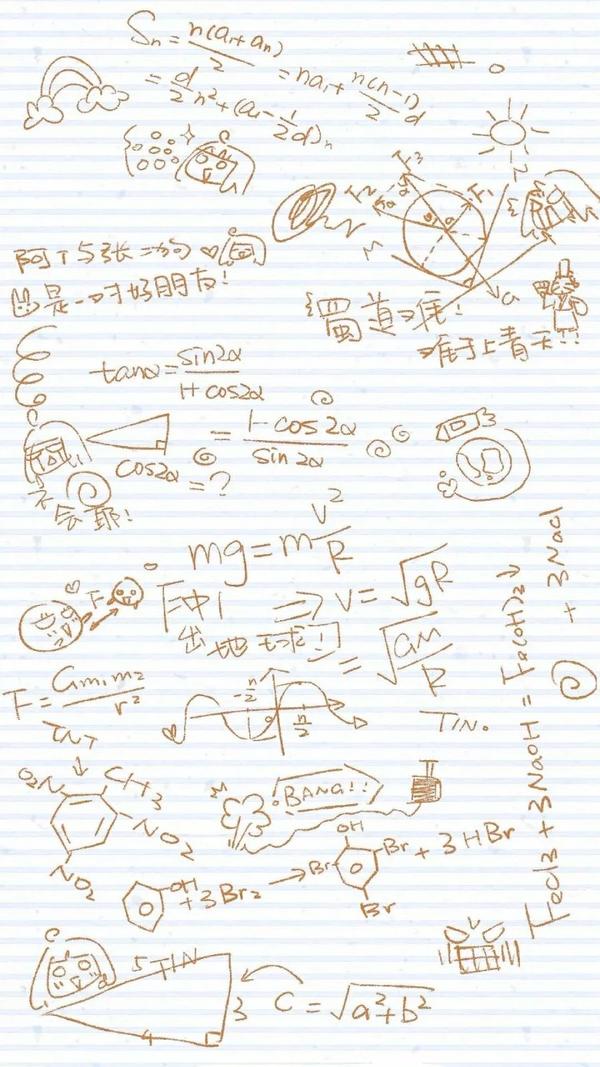 Sₙ = n(a₁+aₙ)/2 = na₁ + n(n-1)/2 d
= d/2 n² + (a₁ - 1/2 d)n
F₃
F₂
F₁
阿丁与张二狗
是一对好朋友!
蜀道难!
难于上青天!!
tanα = sin2α/1+cos2α
= 1-cos2α/sin2α
cos2α = ?
不会耶!
mg = m v²/R
F
⇒ v = √gR
= √GM/R
冲出地球!
F = Gm₁m₂/r²
-π/2
0
π/2
TIN.
TNT
O₂N
CH₃
NO₂
NO₂
BANG!!
OH
+ 3Br₂ →
OH
Br
Br
Br
+ 3HBr
FeCl₃ + 3NaOH = Fe(OH)₃↓ + 3NaCl
5 TIN
3
4
C = √a²+b²